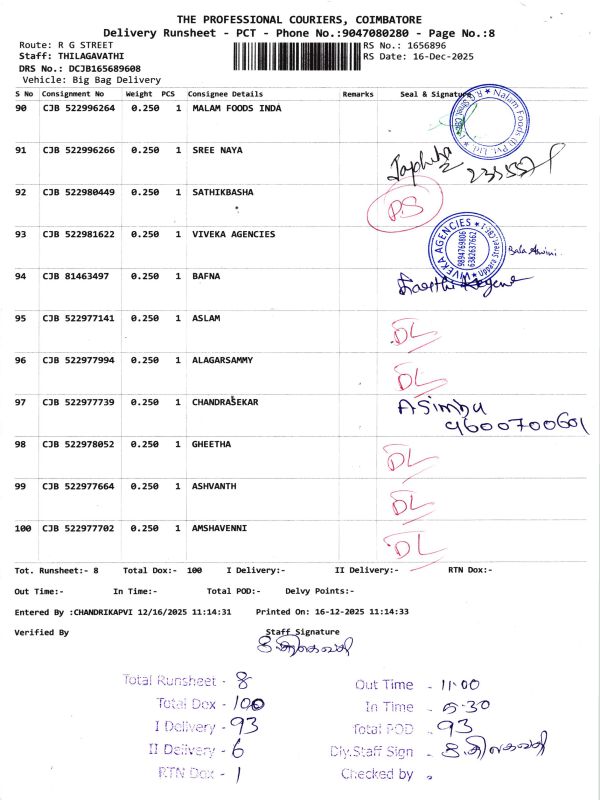 THE PROFESSIONAL COURIERS, COIMBATORE
Delivery Runsheet - PCT - Phone No.:9047080280 - Page No.:8
Route: R G STREET RS No.: 1656896
Staff: THILAGAVATHI RS Date: 16-Dec-2025
DRS No.: DCJB165689608
Vehicle: Big Bag Delivery
S No Consignment No Weight PCS Consignee Details Remarks Seal & Signature
90 CJB 522996264 0.250 1 MALAM FOODS INDA
91 CJB 522996266 0.250 1 SREE NAYA
92 CJB 522980449 0.250 1 SATHIKBASHA PS
93 CJB 522981622 0.250 1 VIVEKA AGENCIES VIVEKA AGENCIES
94 CJB 81463497 0.250 1 BAFNA
95 CJB 522977141 0.250 1 ASLAM DL
96 CJB 522977994 0.250 1 ALAGARSAMMY DL
97 CJB 522977739 0.250 1 CHANDRASEKAR
9600700601
98 CJB 522978052 0.250 1 GHEETHA DL
99 CJB 522977664 0.250 1 ASHVANTH DL
100 CJB 522977702 0.250 1 AMSHAVENNI DL
Tot. Runsheet:- 8 Total Dox:- 100 I Delivery:- II Delivery:- RTN Dox:-
Out Time:- In Time:- Total POD:- Delvy Points:-
Entered By :CHANDRIKAPVI 12/16/2025 11:14:31 Printed On: 16-12-2025 11:14:33
Verified By Staff Signature
Total Runsheet - 8 Out Time - 11:00
Total Dox - 100 In Time - 5.30
I Delivery - 93 Total POD - 93
II Delivery - 6 Dly.Staff Sign -
RTN Dox - 1 Checked by -